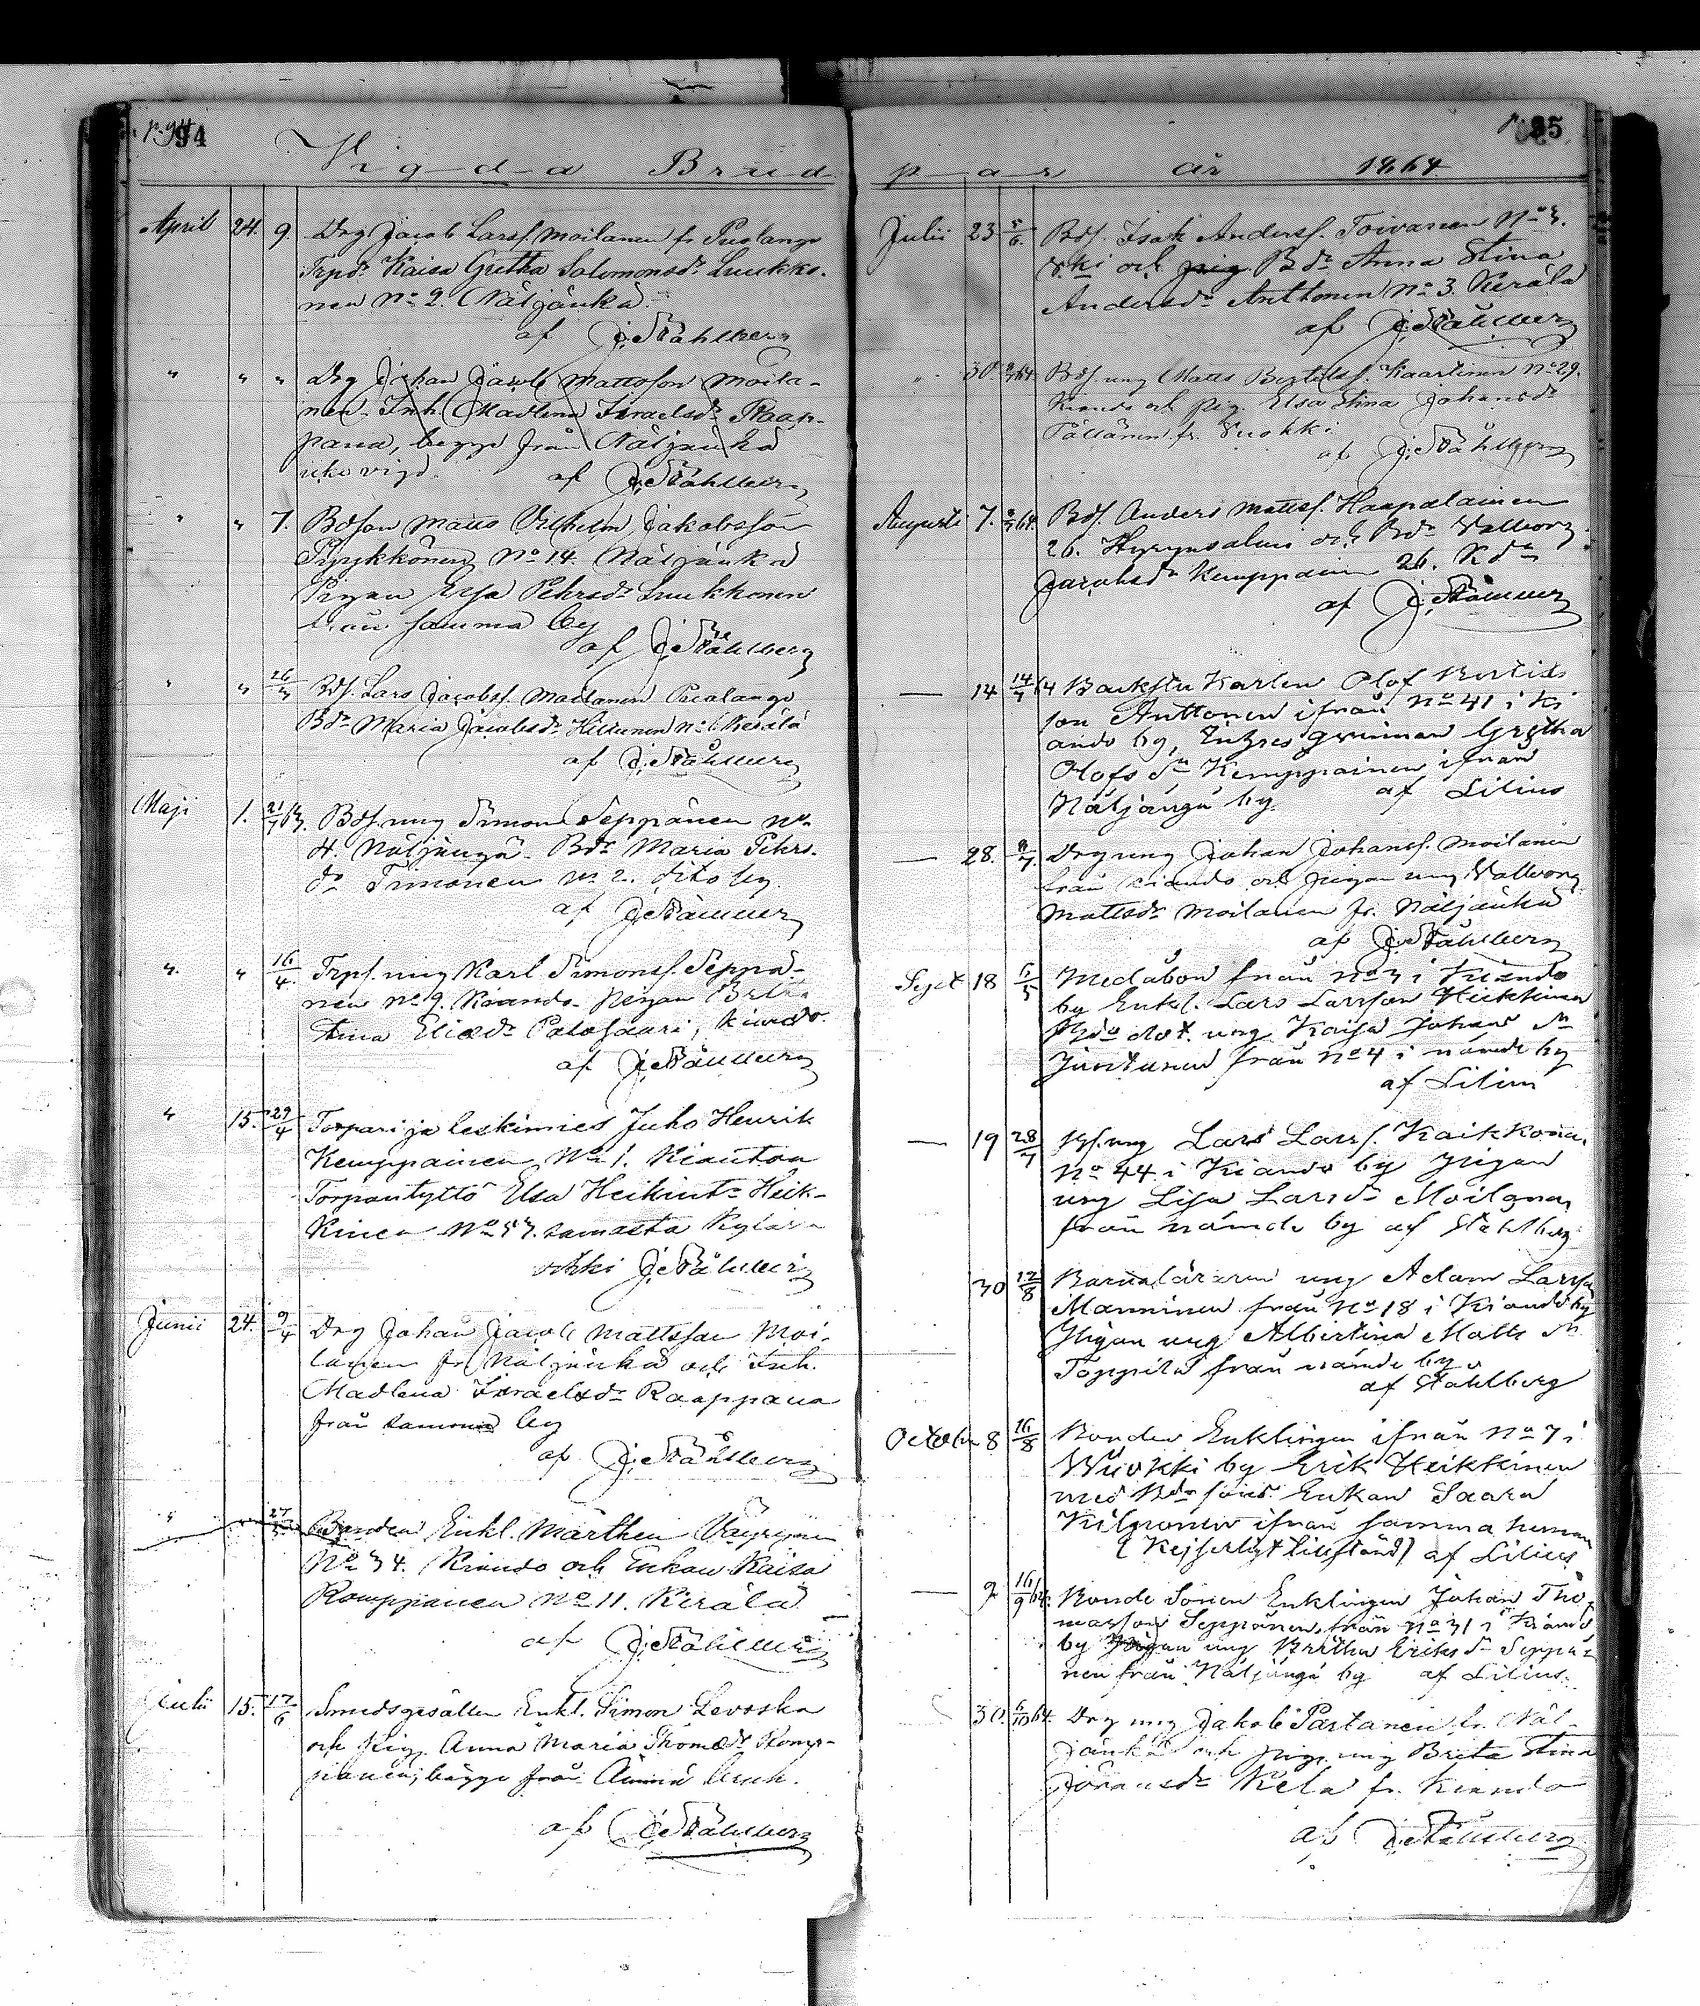 94
Vigda Brud
April 24. 9. Drg Jacob Larss. Moilanen fr Puolango
Trpdr Kaisa Gretha Salomonsdr Luukko-
nen No 2. Näljänkä
af J. Ståhlberg
" " " Drg Johan Jacob Mattsson Moila-
nen. Inh. Madlena Israelsdr Raap-
pana, begge från Näljänkä
af J. Ståhlberg
" " 7. Bdson Matts Vilhelm Jakobsson
Pyykkönen No 14. Näljänkä
Pigan Elsa Pehrsdr Luukkonen
från samma by
af J. Ståhlberg
" " 26/3 Bds. Lars Jacobss. Moilanen Puolango
Bdr Maria Jacobsdr Kiltunen No 6 Kerälä
af J. Ståhlberg
Maji 1. 21/7 63. Bds. ung Simon Seppänen No
4. Näljängä. Bdr Maria Pehrs-
dr Timonen No 2. dito by.
af J. Ståhlberg
" " 16/4 Trps. ung Karl Simonss. Seppä-
nen No 9. Kiando. Pigan Brita
Stina Eliedr Palosaari, Kiando
af J. Ståhlberg
" 15. 29/4 Torpari ja leskimies Juho Henrik
Kemppainen No 1. Kianton
Torparitytto Elsa Heikint. Heik-
kinen No 57. samasta kylästä
vihki J. Ståhlberg
Junii 24. 9/4 Drg Johan Jacob Mattsson Moi-
lanen fr Näljänkä och Inh.
Madlena Israelsdr Raappana
från samma by
af J. Ståhlberg
" " 27/5 Bonden Enkl. Mårthen Väyrynen
No 34. Kiando och Enkan Kaisa
Romppainen No 11. Kerälä
af J. Ståhlberg
Julii 15. 17/6 Smedsgesällen Enkl. Simon Levoska
och pig. Anna Maria Thomædr Komp-
painen, begge från Ämmä bruk.
af J. Ståhlberg
95
par år 1864
Julii 23 5/6. Bds. Isak Anderss. Toivanen No 3.
och Bdr Anna Stina
Andersdr Anttonen No 3. Kerälä
af J. Ståhlberg
" 30. Bds. ung Matts Bertelss. Kaartinen No 29.
Kiando och pig. Elsa Stina Johansdr
fr. Vuokki
af J. Ståhlberg
Augusti 7. Bds. Anders Mattss. Haapalainen
26. Hyrynsalmi och Bdr Valborg
Jacobsdr Kemppain 26. Kdo
af J. Ståhlberg
— 14 14/7 64 Backstu Karlen Olof Bertils
son Anttonen ifrån No 41 i Ki
ando by, Inhyses qvinnan Gretha
Olofs dr Kemppainen ifrån
Näljängä by. af Lilius
— 28. 8/7 Drg ung Johan Johanss. Moilanen
från Kiando och pigan ung Valborg
Mattsdr Moilanen fr. Näljänkä
af J. Ståhlberg
Sept 18 Medåbon från No 3 i Kiando
by Enkl. Lars Larsson Heikkinen
Bde dot. ung Kaisa Johans dr
Juntunen från No 4 i nämde by
af Lilius
— 19 28/7 ung Lars Larss. Kaikkonen
No 44 i Kiando by pigan
ung Lisa Larsdr Moilanen
från nämde by af Ståhlberg
30 12/8 Barnaläraren ung Adam Larsson
Manninen från No 18 i Kiando by
Pigan ung Albertina Matts dr
Toppila från nämde by
af Stahlberg
October 8 16/8 Bonden Enklingen ifrån No 7 i
Wuokki by Erik Heikkinen
med Bde Enkan Saara
Kilponen ifrån samma hemman
(Kejserligt tillstånd) af Lilius
— 9 16/9 64. Bonde Sonen Enklingen Johan Tho-
masson Seppänen från No 31 i Kiando
by Pigan ung Britha Eriks dr Seppä-
nen från Näljängä by af Lilius.
30. 6/10 64. Drg ung Jakob Partanen fr. Näl-
jänkä och pig. ung Brita Stina
Göransdr Kela fr. Kiando
af J. Ståhlberg